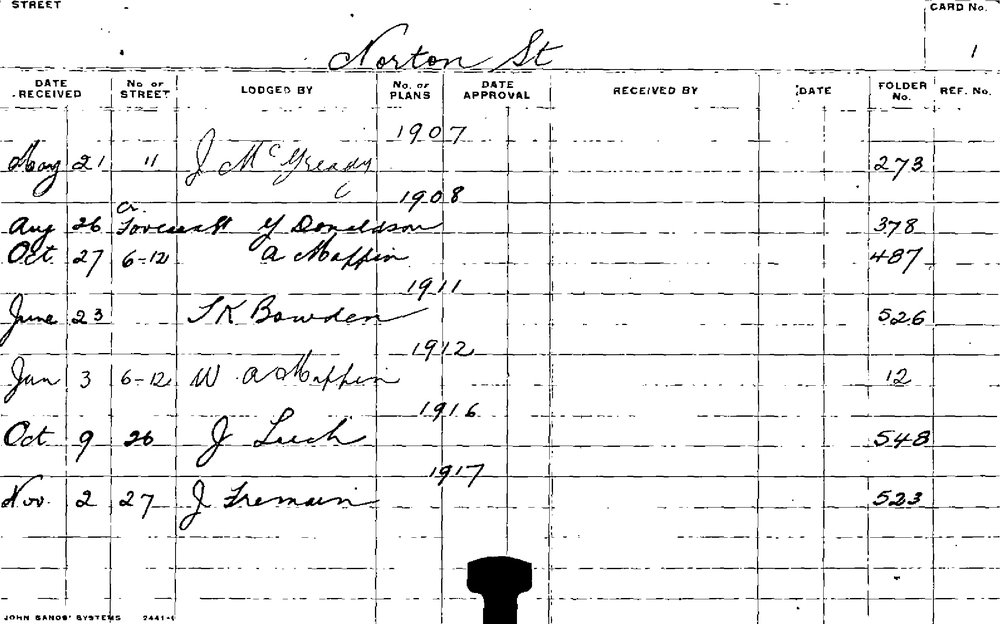 STREET CARD No.
Norton St 1
DATE RECEIVED No. OF STREET LODGED BY No. OF PLANS DATE APPROVAL RECEIVED BY DATE FOLDER No. REF. No.
1907
May 21 11 J McGready 273
1908
Cr.
Aug 26 G Donaldson 378
Oct 27 6-12 A Maffin 487
1911
June 23 T K Bowden 526
1912
Jan 3 6-12 W A Maffin 12
1916
Oct 9 26 J Leech 548
1917
Nov. 2 27 J Tremain 523
JOHN SANDS' SYSTEMS 2441-1